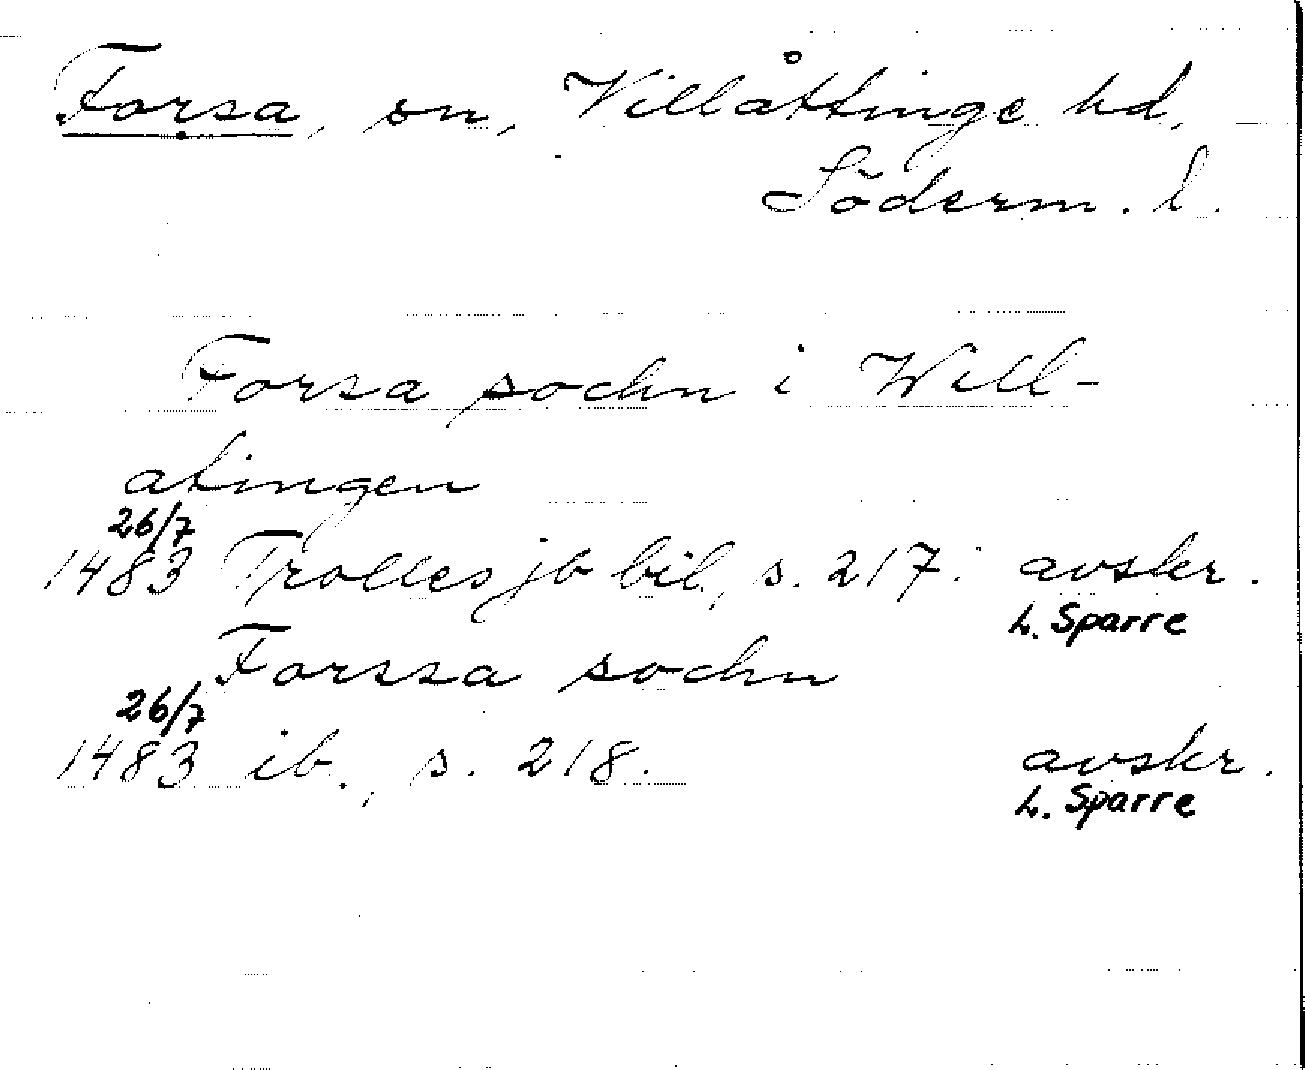 Forsa, sn, Villåttinge hd,
Söderm. l.
Forsa sochn i Will-
atingen
26/7
1483 Trolles jb bil., s. 217. avskr.
L. Sparre
Forssa sochn
26/7
1483 ib., s. 218. avskr.
L. Sparre